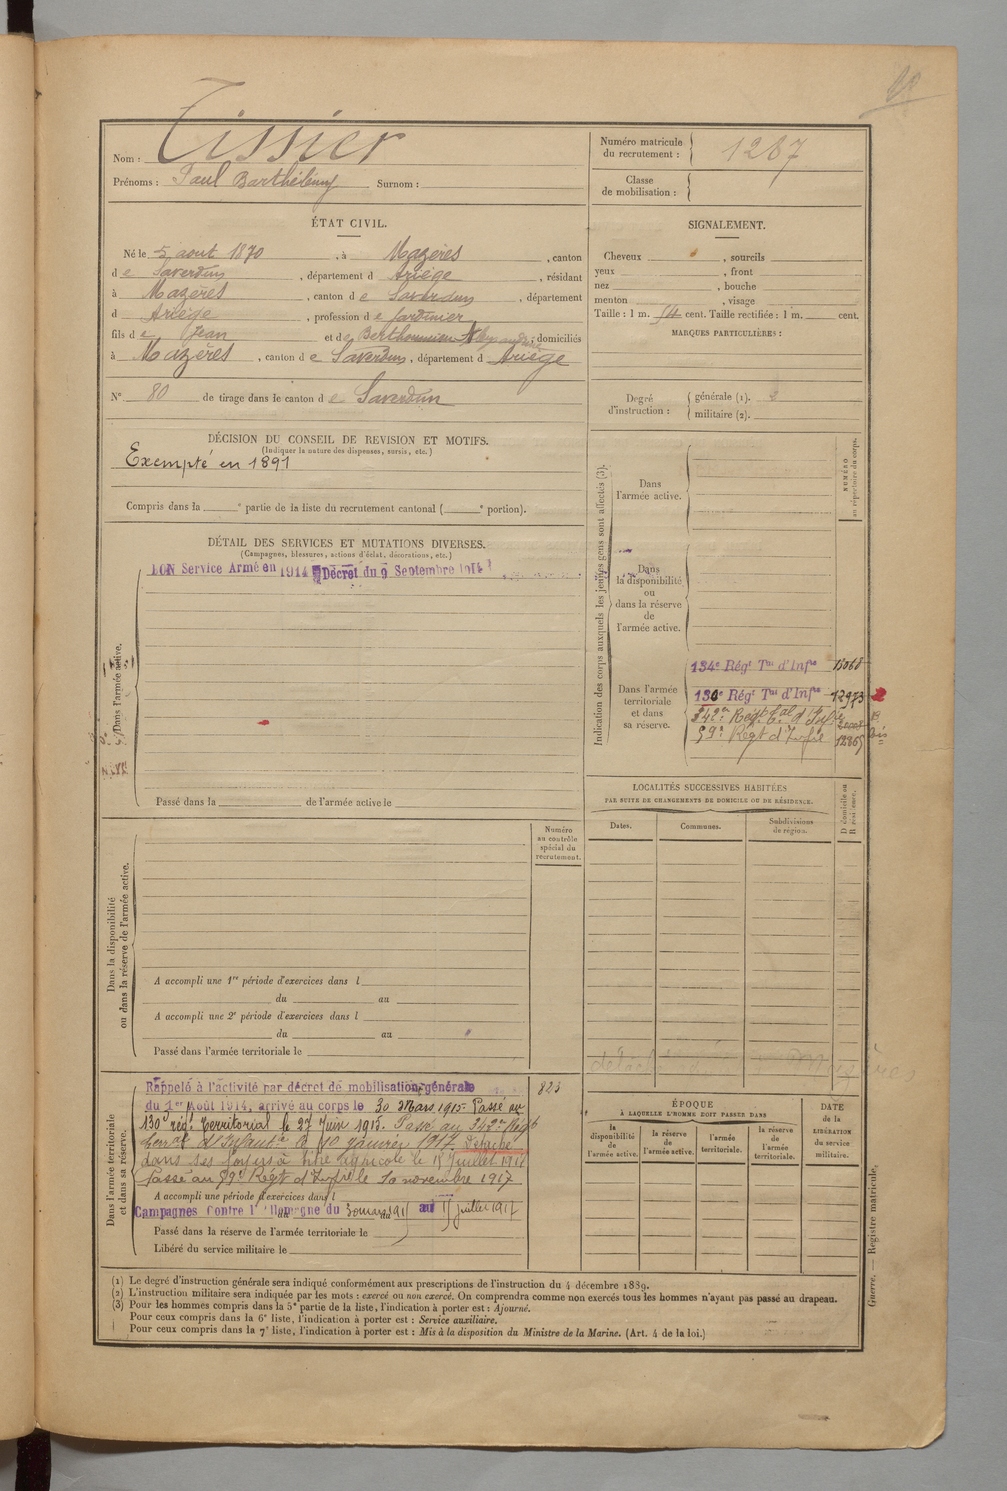 Tissier
Nom :
Prénoms : Paul Barthélemy Surnom :
Numéro matricule du recrutement : 1287
Classe de mobilisation :
ÉTAT CIVIL.
Né le 5 aout 1870, à Mazères, canton
de Saverdun, département d Ariège, résidant
à Mazères, canton de Saverdun, département
d Ariège, profession de Jardinier
fils de Jean et de Berthoumieu, domiciliés
à Mazères, canton de Saverdun, département d Ariège
N° 80 de tirage dans le canton de Saverdun
SIGNALEMENT.
Cheveux , sourcils
yeux , front
nez , bouche
menton , visage
Taille : 1 m. 54 cent. Taille rectifiée : 1 m. cent.
MARQUES PARTICULIÈRES :
Degré d'instruction : générale (1). 2
militaire (2).
DÉCISION DU CONSEIL DE REVISION ET MOTIFS.
(Indiquer la nature des dispenses, sursis, etc.)
Exempté en 1891
Compris dans la e partie de la liste du recrutement cantonal ( e portion).
DÉTAIL DES SERVICES ET MUTATIONS DIVERSES.
(Campagnes, blessures, actions d'éclat, décorations, etc.)
BON Service Armé en 1914 Décret du 9 Septembre 1914
Dans l'armée active.
Passé dans la de l'armée active le
Indication des corps auxquels les jeunes gens sont affectés (3).
NUMÉRO au répertoire du corps.
Dans l'armée active.
Dans la disponibilité ou dans la réserve de l'armée active.
Dans l'armée territoriale et dans sa réserve.
134e Régt Tal d'Infie 15068
130e Régt Tal d'Infie 12973
342e Régt Tal d'Infie
59e Régt d'Infie 12865
bis
LOCALITÉS SUCCESSIVES HABITÉES
PAR SUITE DE CHANGEMENTS DE DOMICILE OU DE RÉSIDENCE.
Dates. Communes. Subdivisions de région. D domicile ou R résidence.
Numéro au contrôle spécial du recrutement.
Dans la disponibilité ou dans la réserve de l'armée active.
A accompli une 1re période d'exercices dans l
du au
A accompli une 2e période d'exercices dans l
du au
Passé dans l'armée territoriale le
Dans l'armée territoriale et dans sa réserve.
Rappelé à l'activité par décret de mobilisation générale 823
du 1er Août 1914, arrivé au corps le 30 Mars 1915. Passé au
130e régt Territorial le 27 Juin 1915. Passé au 342e Régt
d'Infanterie le 10 Janvier 1917 Détaché
dans ses foyers à titre agricole le 15 Juillet 1917
Passé au 59e Régt d'Infie le 10 novembre 1917
A accompli une période d'exercices dans l
Campagnes contre l'Allemagne du 30 mars 1915 au 15 juillet 1917
Passé dans la réserve de l'armée territoriale le
Libéré du service militaire le
ÉPOQUE
À LAQUELLE L'HOMME DOIT PASSER DANS
la disponibilité de l'armée active. la réserve de l'armée active. l'armée territoriale. la réserve de l'armée territoriale.
DATE de la LIBÉRATION du service militaire.
Guerre. — Registre matricule.
(1) Le degré d'instruction générale sera indiqué conformément aux prescriptions de l'instruction du 4 décembre 1889.
(2) L'instruction militaire sera indiquée par les mots : exercé ou non exercé. On comprendra comme non exercés tous les hommes n'ayant pas passé au drapeau.
(3) Pour les hommes compris dans la 5e partie de la liste, l'indication à porter est : Ajourné.
Pour ceux compris dans la 6e liste, l'indication à porter est : Service auxiliaire.
Pour ceux compris dans la 7e liste, l'indication à porter est : Mis à la disposition du Ministre de la Marine. (Art. 4 de la loi.)